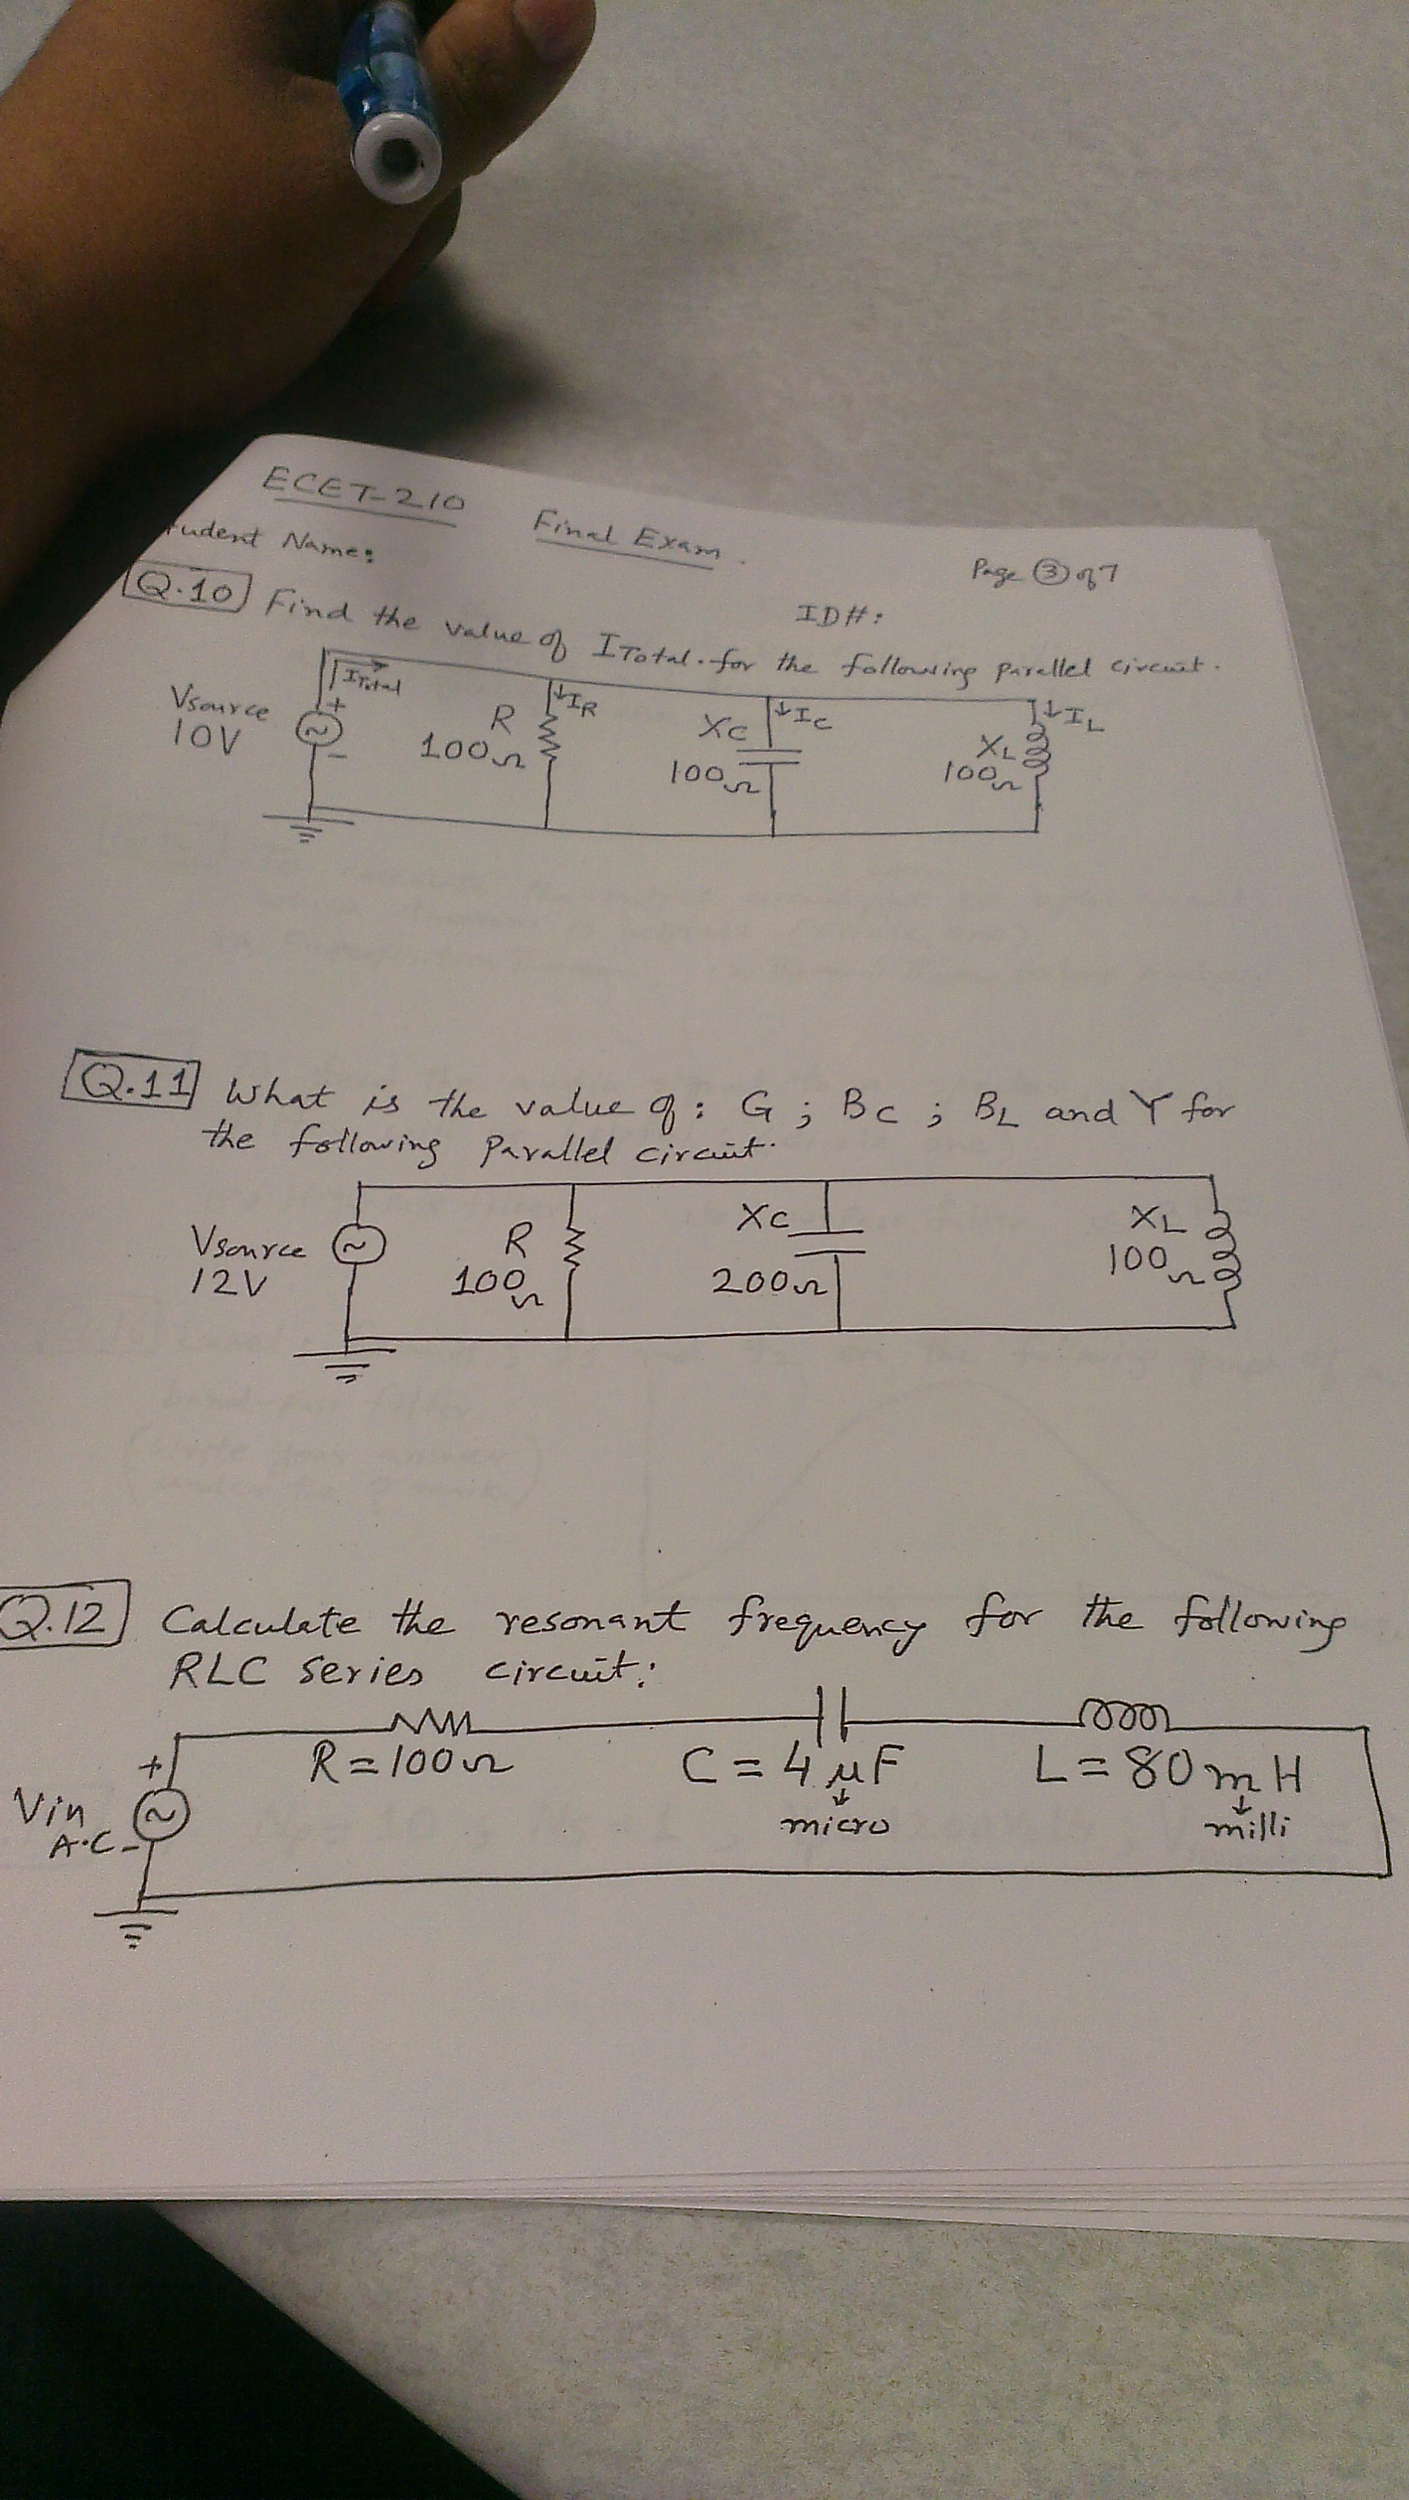 ECET-210 Final Exam.
tudent Name:
Page ③ of 7
ID#:
Q.10 Find the value of ITotal. for the following parallel circuit.
ITotal
Vsource
10V
+
-
R
100Ω
↓IR
XC
100Ω
↓IC
XL
100Ω
↓IL
Q.11 What is the value of: G; BC; BL and Y for
the following Parallel circuit.
Vsource
12V
R
100Ω
XC
200Ω
XL
100Ω
Q.12 Calculate the resonant frequency for the following
RLC series circuit:
Vin
A.C
+
-
R=100Ω
C=4μF
micro
L=80mH
milli